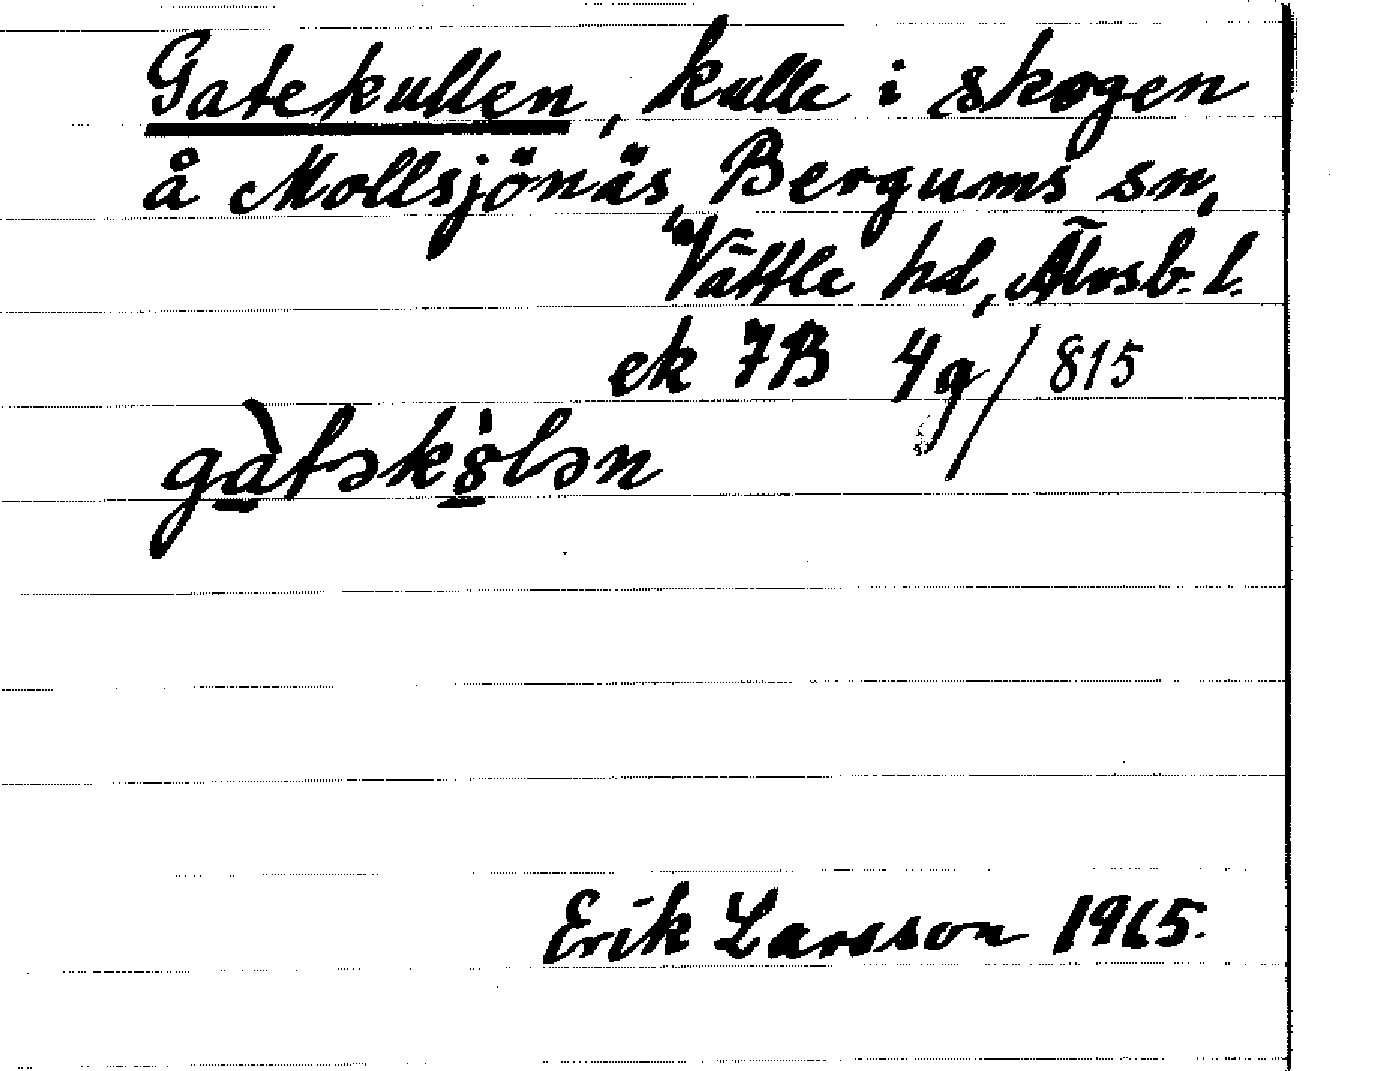 Gatekullen, kulle i skogen
å Mollsjönäs, Bergums sn,
Vättle hd, Älvsb. l.
ek 7B 4g/815
gàtəkùlən
Erik Larsson 1965.